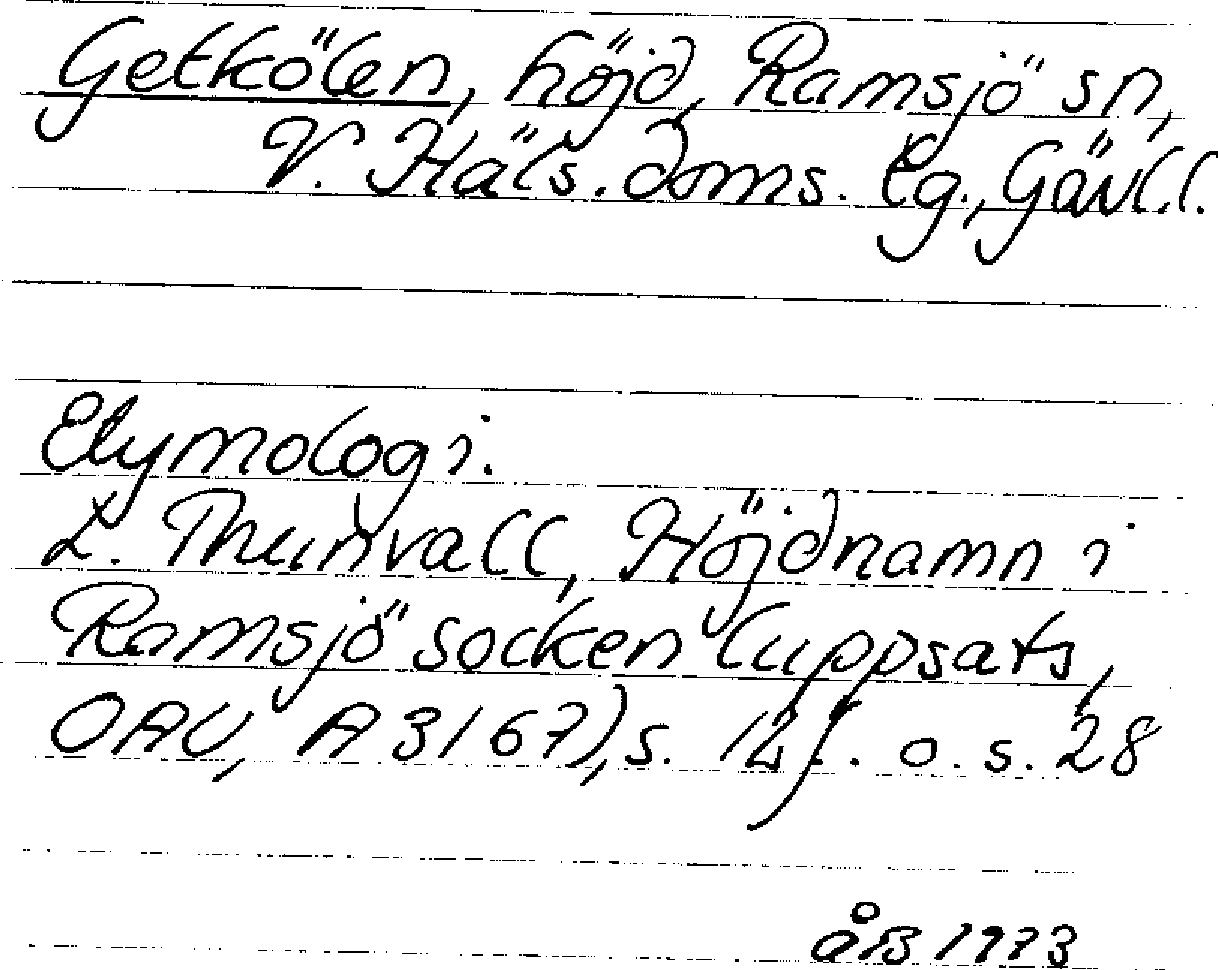 Getkölen, höjd, Ramsjö sn,
V. Häls. doms. tg., Gävl.l.
Etymologi.
L. Thunvall, Höjdnamn i
Ramsjö socken (uppsats,
OAU, A 3167), s. 12f. o. s. 28
åB 1973